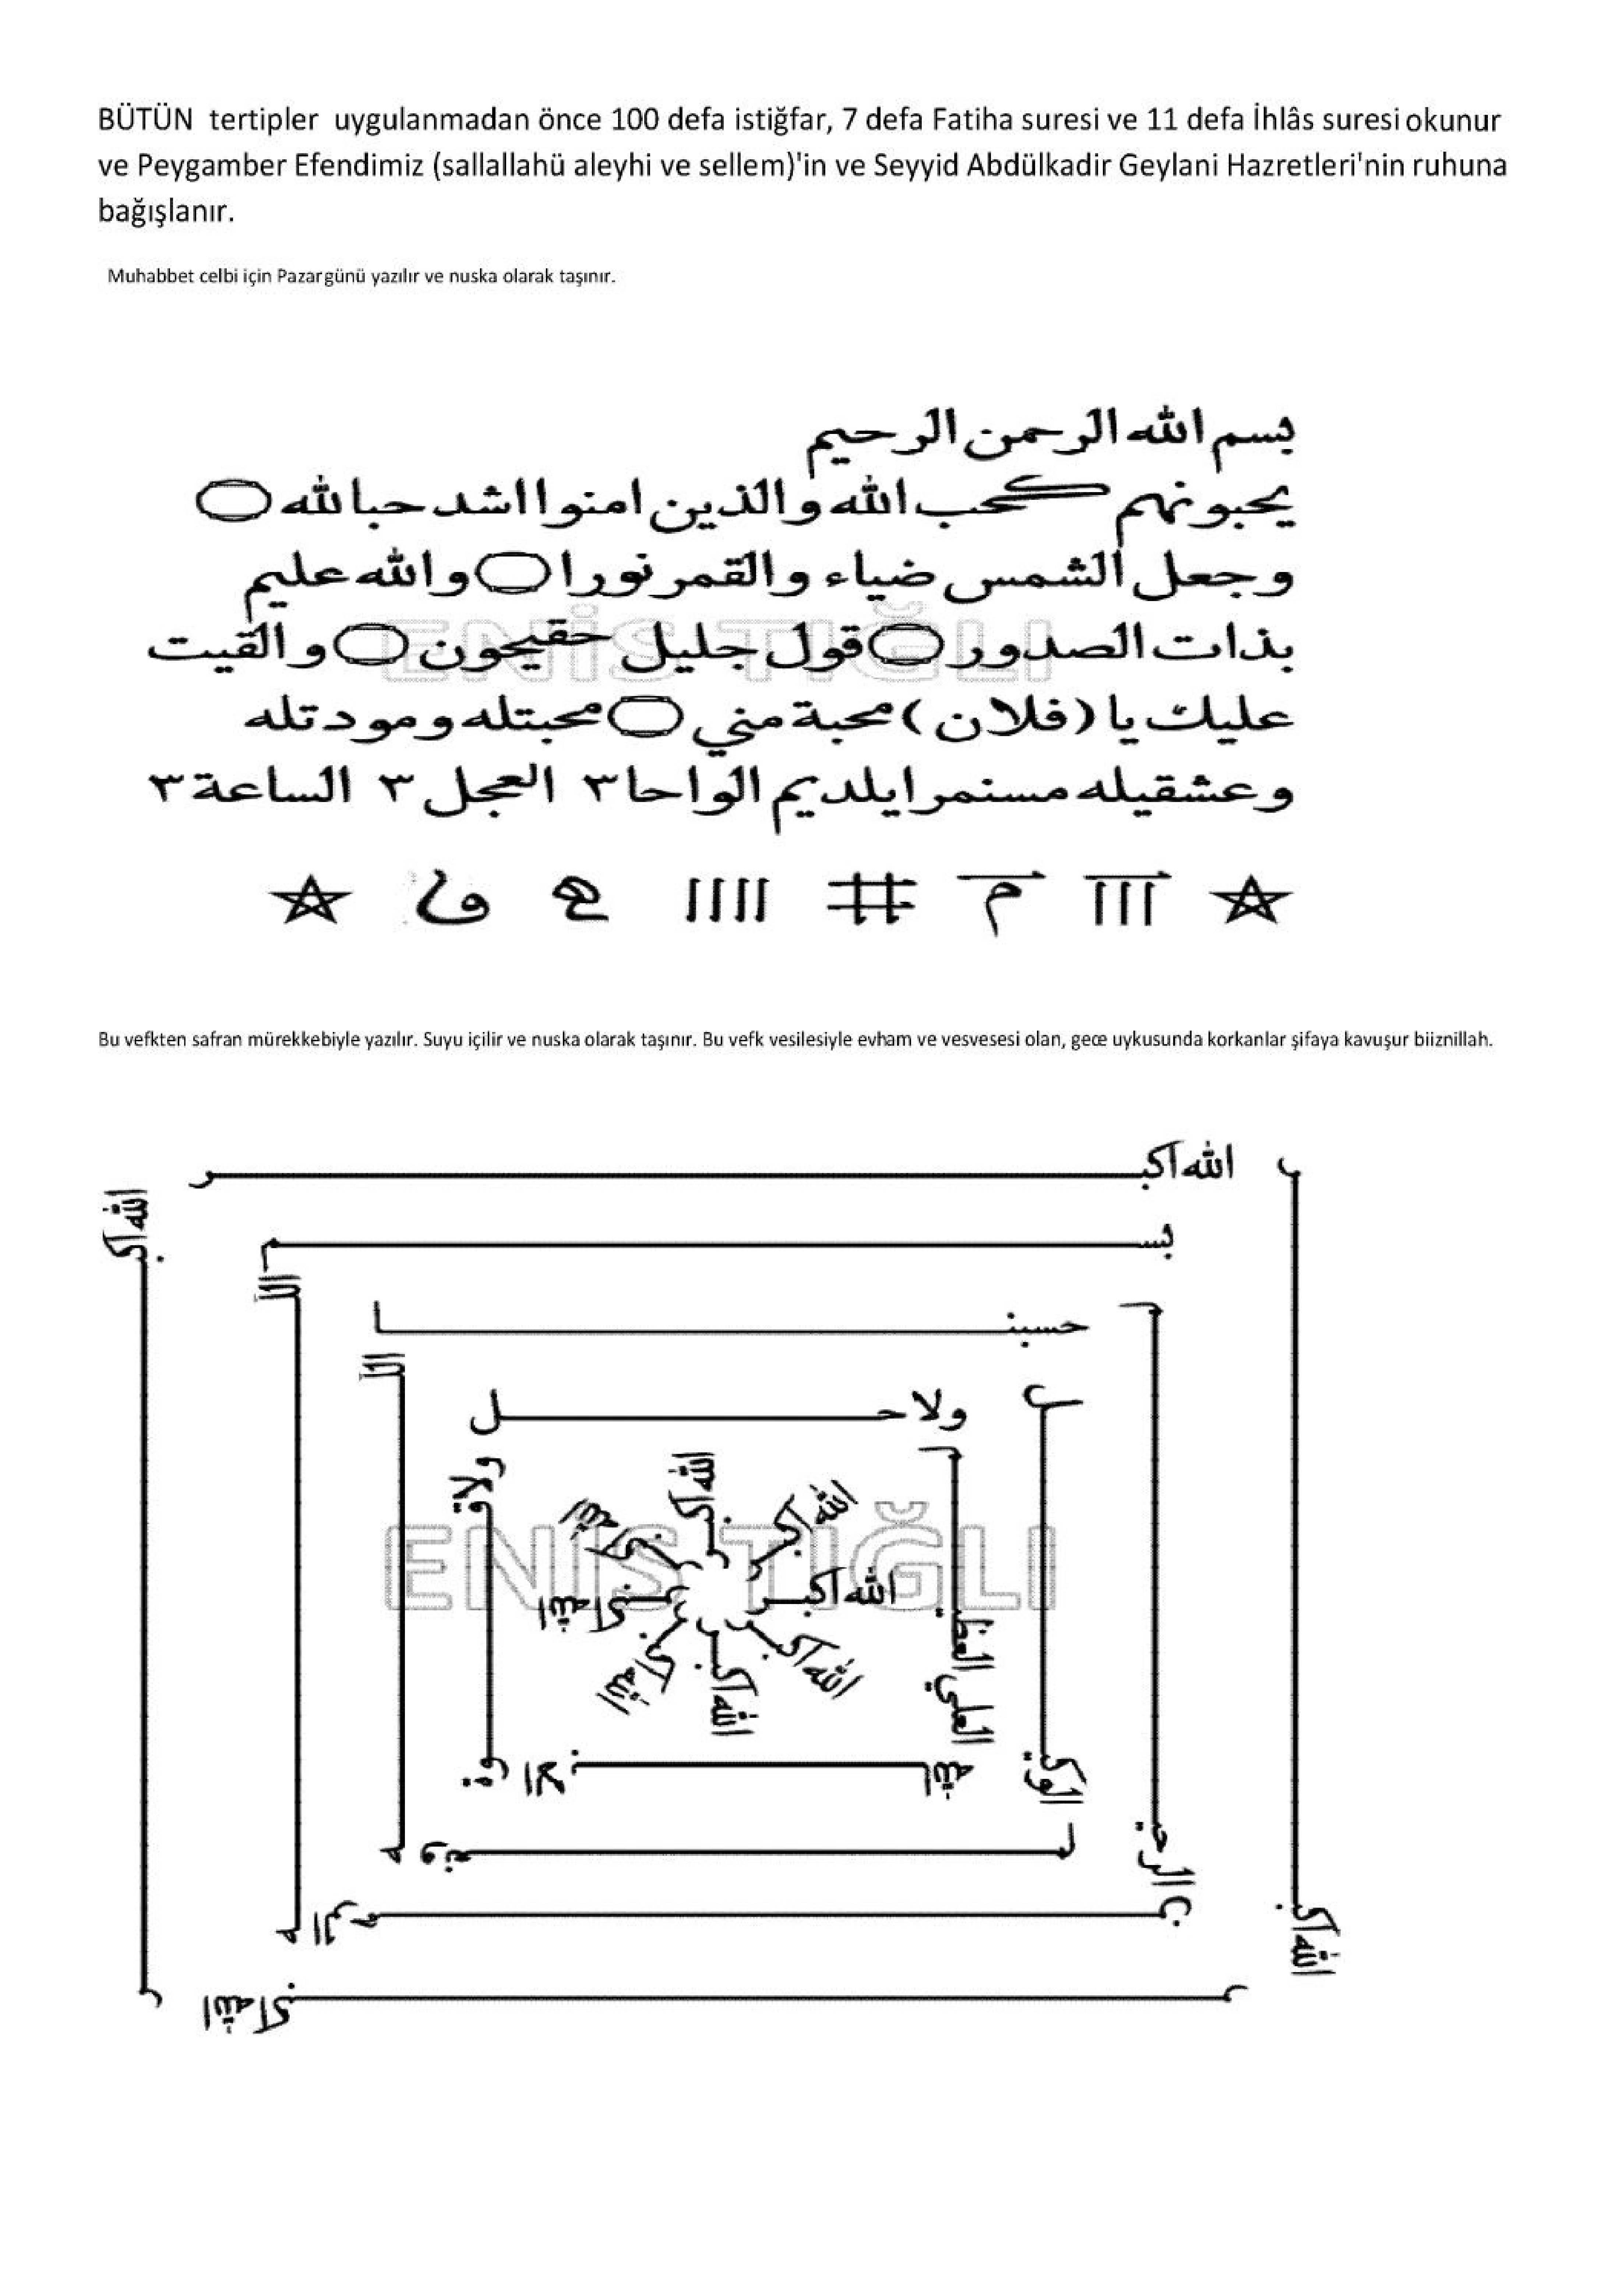 BÜTÜN tertipler uygulanmadan önce 100 defa istiğfar, 7 defa Fatiha suresi ve 11 defa İhlâs suresi okunur
ve Peygamber Efendimiz (sallallahü aleyhi ve sellem)'in ve Seyyid Abdülkadir Geylani Hazretleri'nin ruhuna
bağışlanır.
Muhabbet celbi için Pazar günü yazılır ve nuska olarak taşınır.
بسم الله الرحمن الرحيم
يحبونهم كحب الله والذين امنوا اشد حبا لله
وجعل الشمس ضياء والقمر نورا والله عليم
بذات الصدور قول جليل حقيحون والقيت
عليك يا (فلان) محبة مني محبتله ومودتله
وعشقيله مستمرا يلديم الواحا ٣ العجل ٣ الساعة ٣
ENİS TIĞLI
Bu vefkten safran mürekkebiyle yazılır. Suyu içilir ve nuska olarak taşınır. Bu vefk vesilesiyle evham ve vesvesesi olan, gece uykusunda korkanlar şifaya kavuşur biiznillah.
الله اكبر
الله اكبر
الله اكبر
الله اكبر
بسم
الله
الرحمن
الرحيم
حسبنا
الله
ونعم
الوكيل
ولا حل
ولا قوة
الا بالله
العلي العظيم
الله اكبر
الله اكبر
الله اكبر
الله اكبر
الله اكبر
الله اكبر
الله اكبر
الله اكبر
ENİS TIĞLI